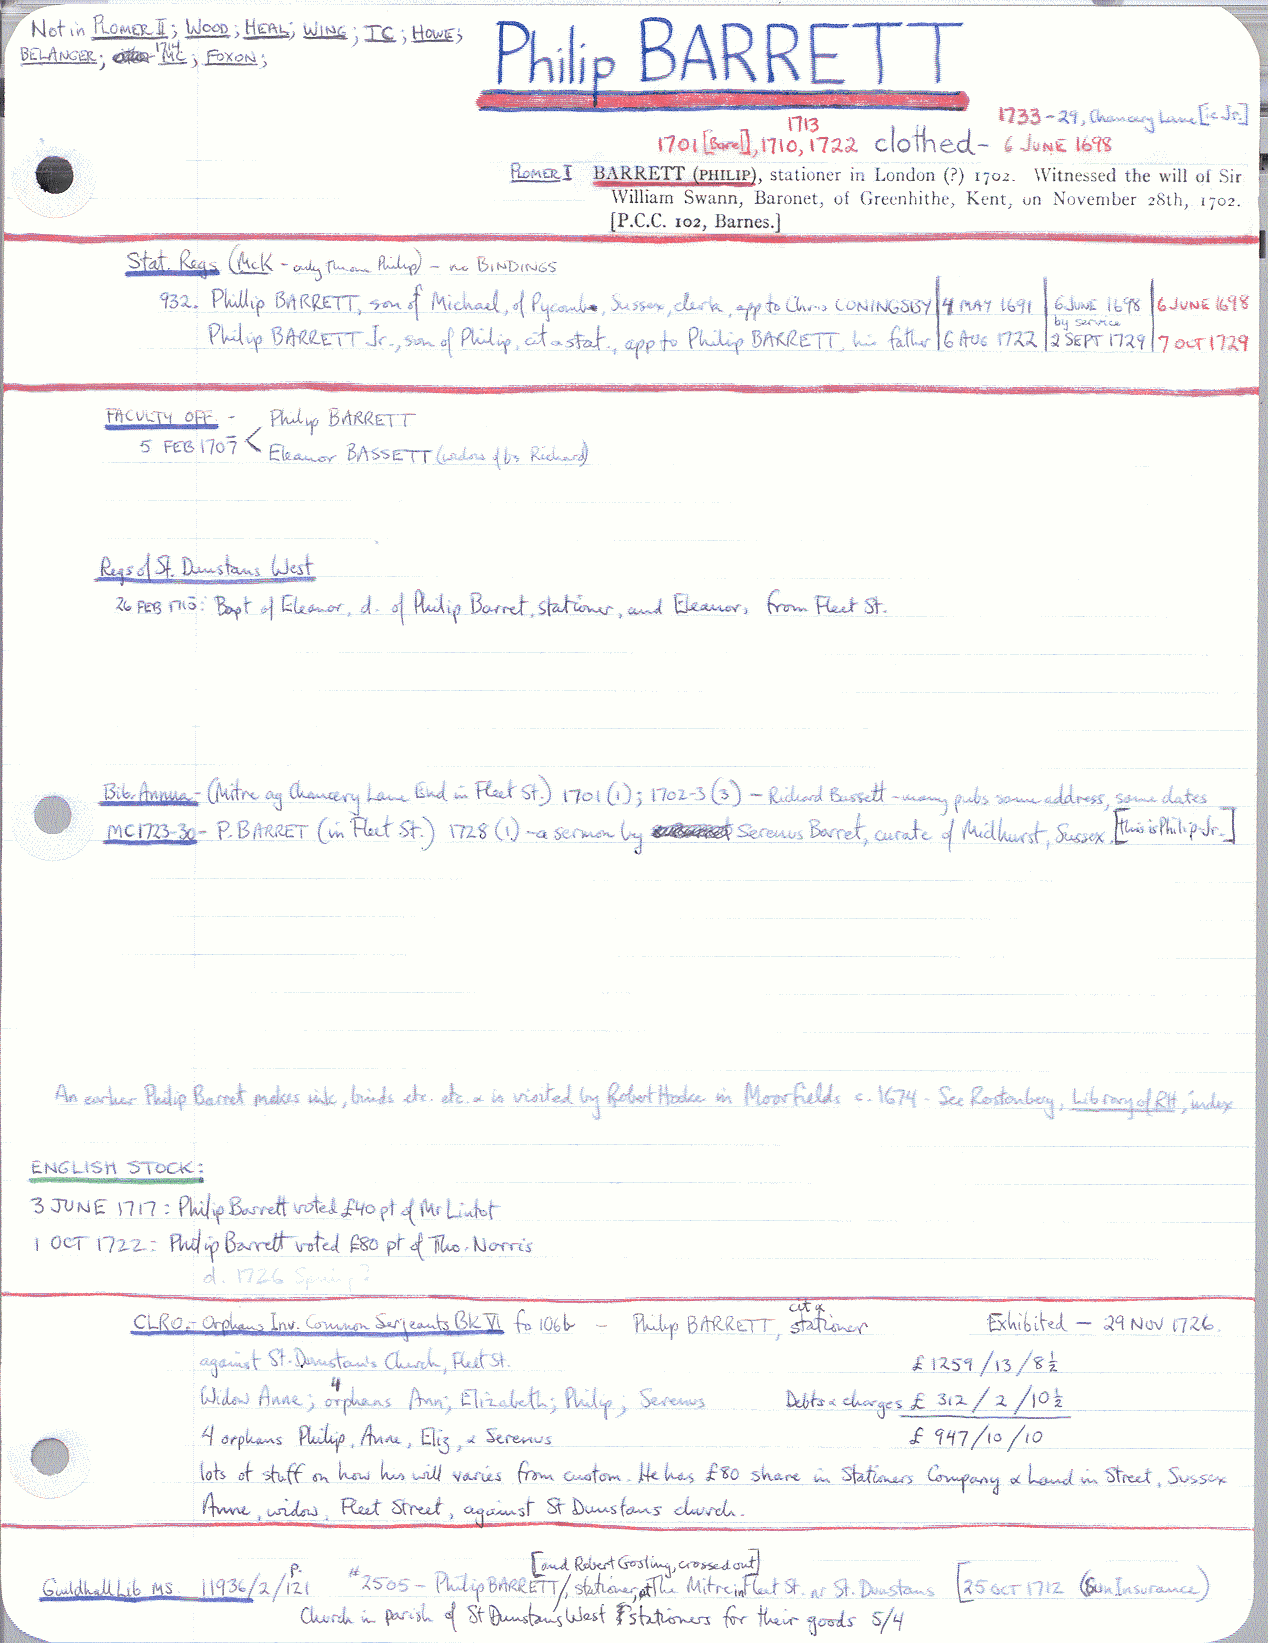 Not in PLOMER II; WOOD; HEAL; WING; TC; HOWE;
BELANGER; 1714 MC; FOXON;
Philip BARRETT
1733-29, Chancery Lane [ie Jr.]
1713
1701 [Barel], 1710, 1722 clothed - 6 JUNE 1698
PLOMER I BARRETT (PHILIP), stationer in London (?) 1702. Witnessed the will of Sir
William Swann, Baronet, of Greenhithe, Kent, on November 28th, 1702.
[P.C.C. 102, Barnes.]
Stat. Regs (McK - only the one Philip) - no BINDINGS
932. Phillip BARRETT, son of Michael, of Pycombe, Sussex, clerk, app to Chris CONINGSBY | 4 MAY 1691 | 6 JUNE 1698 | 6 JUNE 1698
by service
Philip BARRETT Jr., son of Philip, cit & stat., app to Philip BARRETT, his father | 6 AUG 1722 | 2 SEPT 1729 | 7 OCT 1729
FACULTY OFF. - Philip BARRETT
5 FEB 1707 < Eleanor BASSETT (widow of bs Richard)
Regs of St. Dunstans West
26 FEB 1713: Bapt of Eleanor, d. of Philip Barret, stationer, and Eleanor, from Fleet St.
Bib. Annua - (Mitre ag Chancery Lane End in Fleet St.) 1701 (1); 1702-3 (3) - Richard Bassett - many pubs same address, same dates
MC 1723-30 - P. BARRET (in Fleet St.) 1728 (1) - a sermon by Serenus Barret, curate of Midhurst, Sussex. [this is Philip Jr.]
An earlier Philip Barret makes ink, binds etc. etc. & is visited by Robert Hooke in Moorfields c. 1674 - See Rostenberg, Library of RH, index
ENGLISH STOCK:
3 JUNE 1717: Philip Barrett voted £40 pt of Mr Lintot
1 OCT 1722: Philip Barrett voted £80 pt of Tho. Norris
d. 1726 Spring?
CLRO - Orphans Inv. Common Serjeants Bk VI fo 106b - Philip BARRETT, cit & stationer Exhibited - 29 NOV 1726.
against St. Dunstan's Church, Fleet St. £1259/13/8½
Widow Anne; 4 orphans Ann; Elizabeth; Philip; Serenus Debts & charges £ 312/2/10½
4 orphans Philip, Anne, Eliz, & Serenus £ 947/10/10
lots of stuff on how his will varies from custom. He has £80 share in Stationers Company & land in Street, Sussex
Anne, widow, Fleet Street, against St Dunstans church.
[and Robert Gosling, crossed out]
Guildhall Lib MS. 11936/2/p.121 #2505 - Philip BARRETT/, stationer, at The Mitre in Fleet St. nr St. Dunstans [25 OCT 1712 (Sun Insurance)
Church in parish of St Dunstans West stationers for their goods 5/4